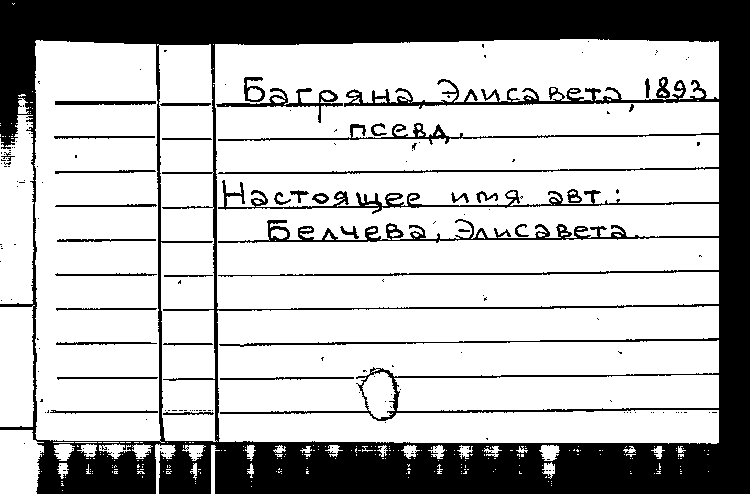 Багряна, Элисавета, 1893.
псевд.
Настоящее имя авт.:
Белчева, Элисавета.